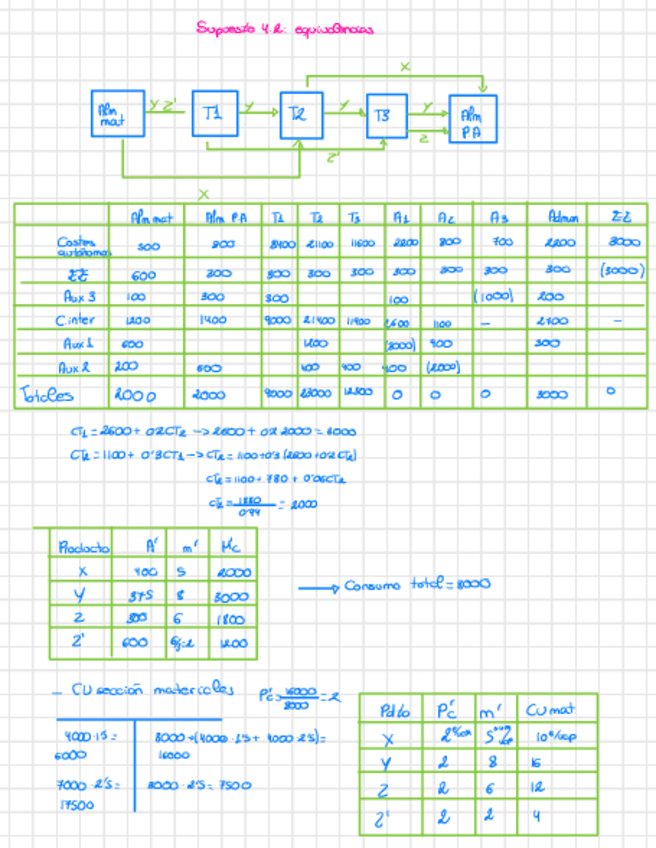 Supuesto 4.2: equivalencias
X
Alm mat
Y Z'
T1
Y
T2
Y
T3
Y
Z
Alm PA
Z'
X
Alm mat Alm PA T1 T2 T3 A1 A2 A3 Admon ΣΣ
Costes autónomos 500 800 8400 21100 11600 2200 800 700 2200 3000
ΣΣ 600 300 300 300 300 300 300 300 300 (3000)
Aux 3 100 300 300 100 (1000) 200
C.inter 1200 1400 9000 21400 11900 2600 1100 - 2700 -
Aux 1 600 1200 (3000) 900 300
Aux 2 200 600 400 400 400 (2000)
Totales 2000 2000 9000 23000 12300 0 0 0 3000 0
CT1 = 2600 + 0'2CT2 -> 2600 + 0'2 2000 = 3000
CT2 = 1100 + 0'3CT1 -> CT2 = 1100 + 0'3 (2600 + 0'2 CT2)
CT2 = 1100 + 780 + 0'06CT2
CT2 = 1880/0'94 = 2000
Producto A' m' M'c
X 400 5 2000
Y 375 8 3000
Z 300 6 1800
Z' 600 6/3=2 1200
Consumo total = 8000
- CU sección materiales P'c = 16000/8000 = 2
4000·1'5 =
6000
8000 + (4000·1'5 + 4000·2'5) =
16000
7000·2'5 =
17500
3000·2'5 = 7500
Pdto P'c m' CU mat
X 2 5
Y 2 8 16
Z 2 6 12
Z' 2 2 4